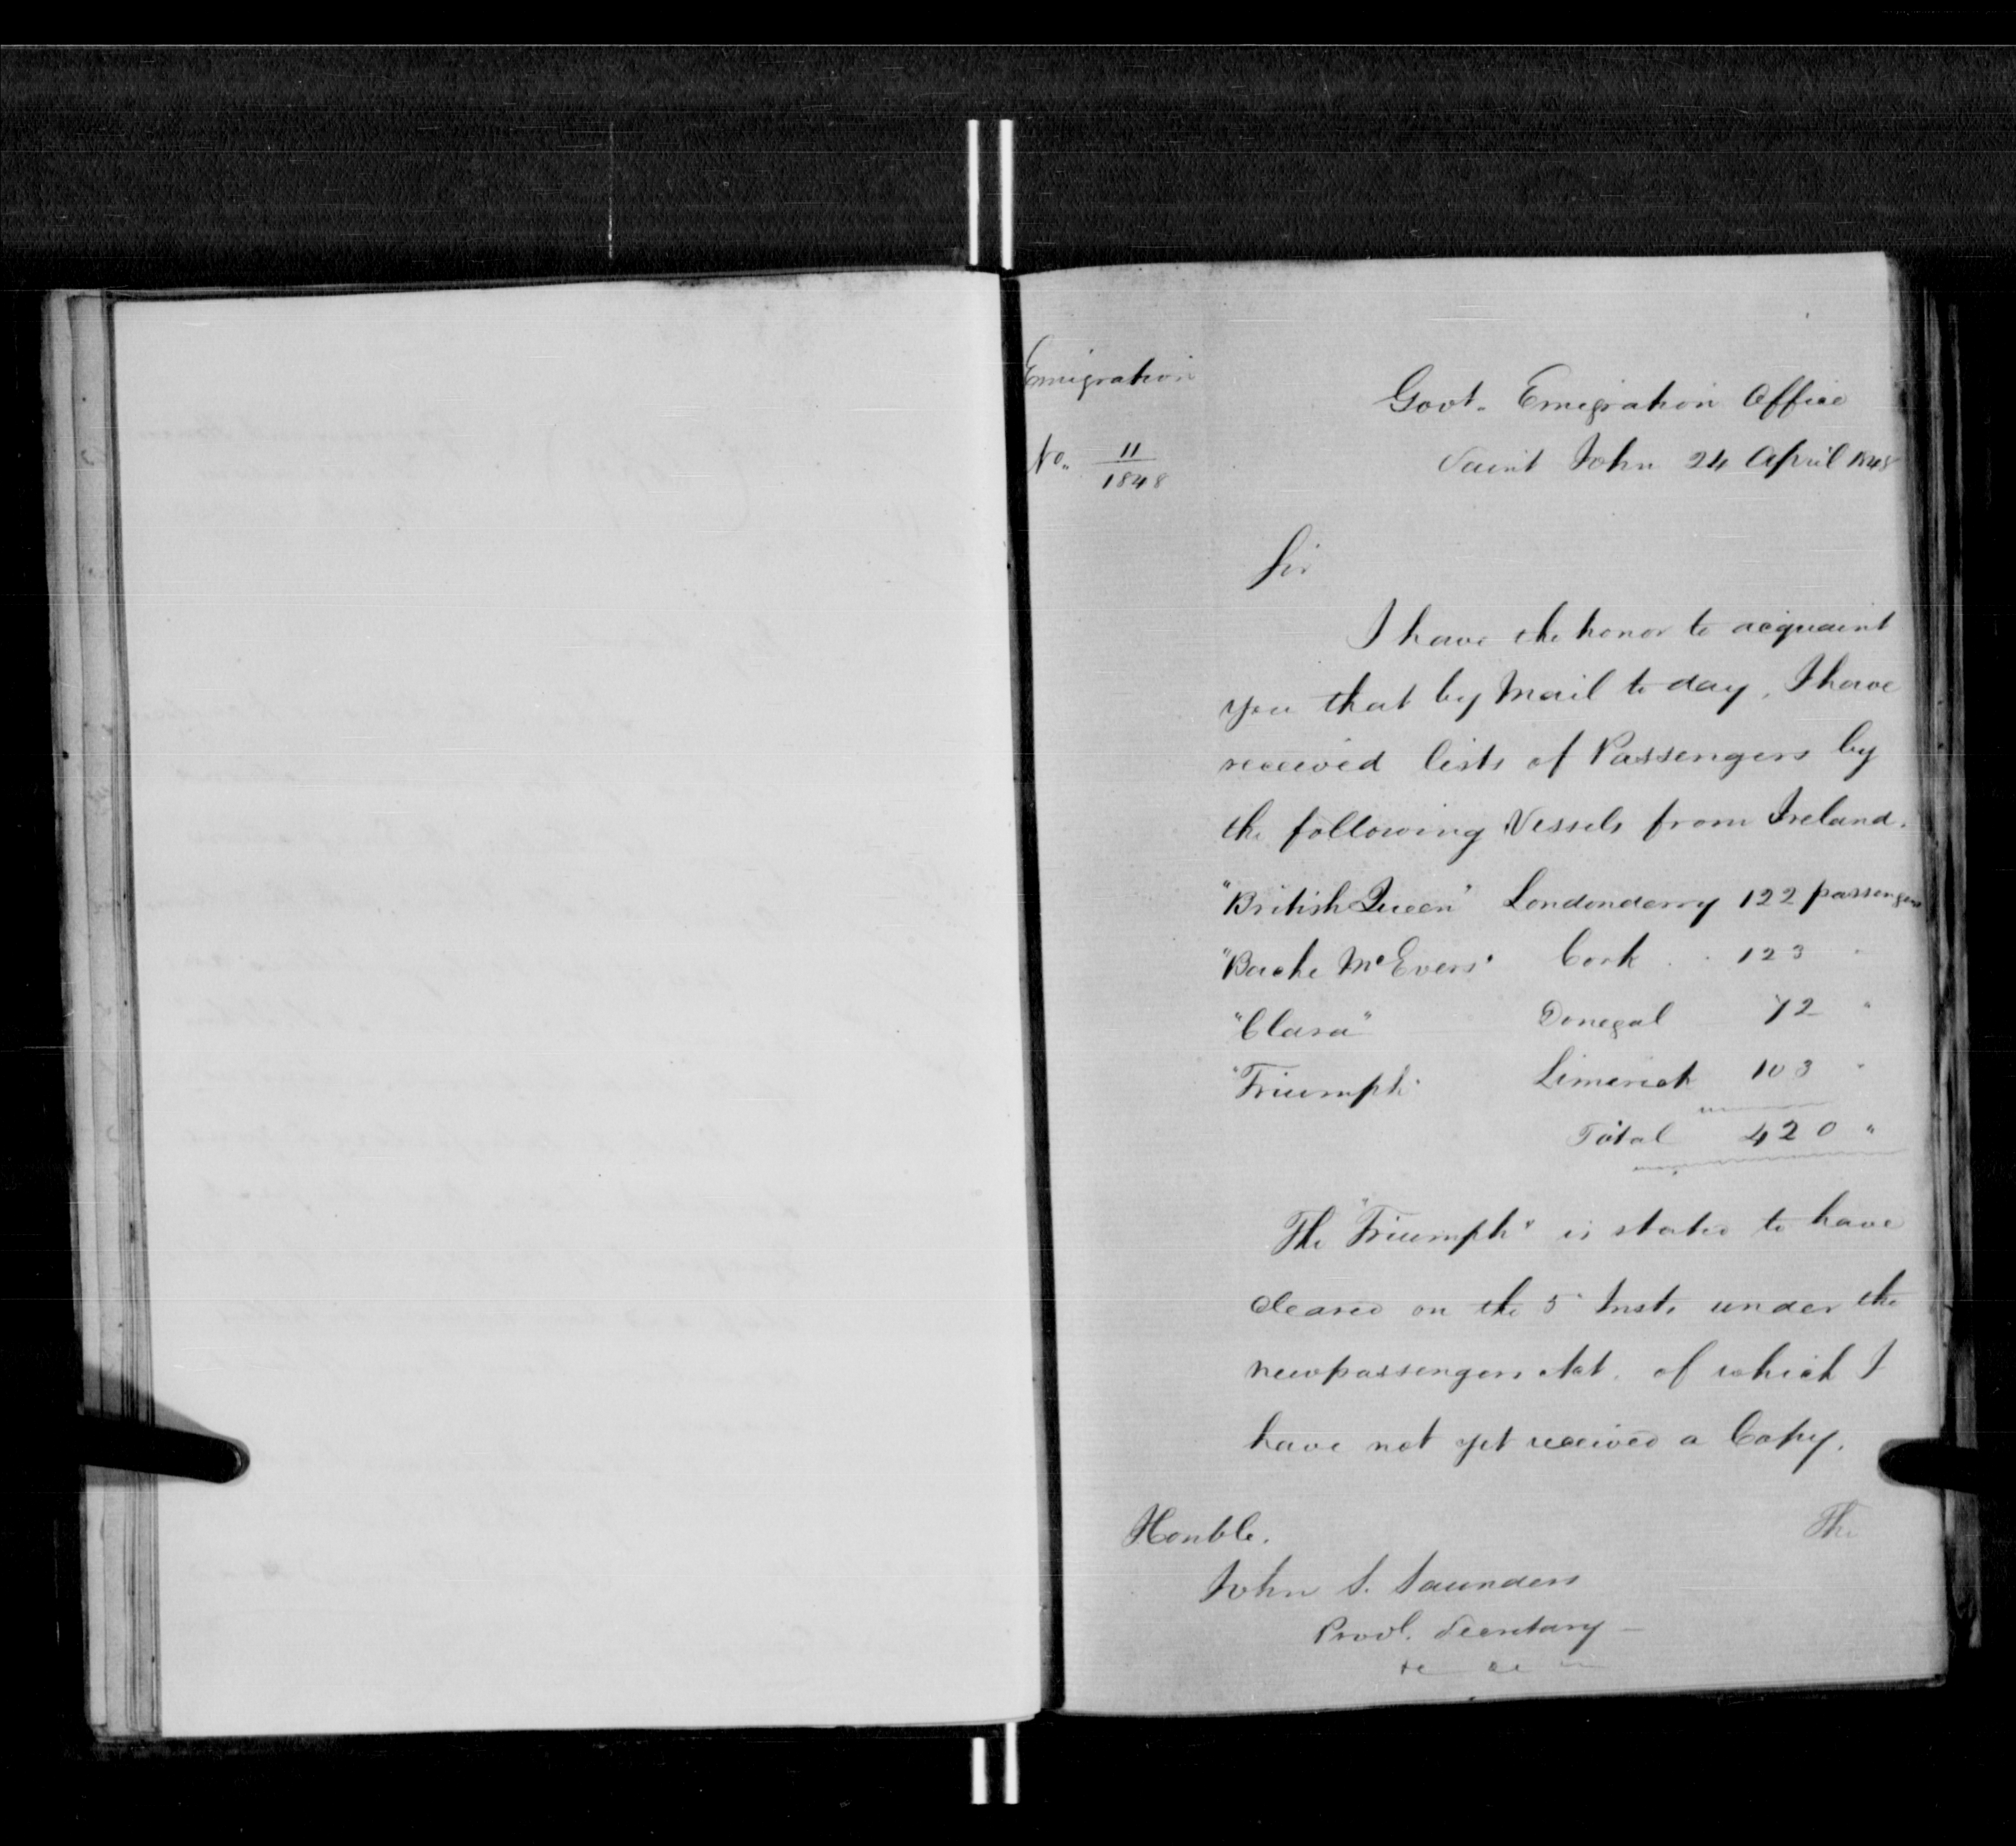 Emigration
No. 11/1848
Govt. Emigration Office
Saint John 24 April 1848
Sir
I have the honor to acquaint
you that by Mail to day, I have
received lists of Passengers by
the following Vessels from Ireland.
"British Queen" Londonderry 122 passengers
"Bache McEvers" Cork . . 123 "
"Clara" Donegal 72 "
"Triumph" Limerick 103 "
Total 420 "
The "Triumph" is stated to have
cleared on the 5 Inst. under the
new passengers Act. of which I
have not yet received a Copy.
The
Honble.
John S. Saunders
Provl. Secretary —